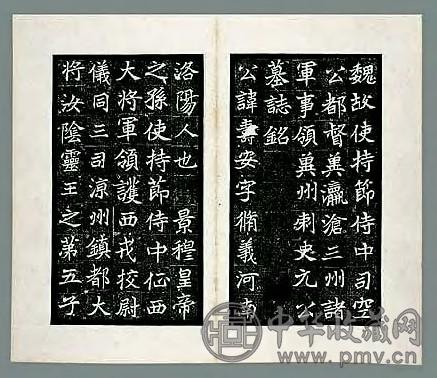 魏故使持節侍中司空
公都督兾瀛滄三州諸
軍事領兾州刺史元公
墓誌銘
公諱壽安字脩義河南
洛陽人也 景穆皇帝
之孫使持節侍中征西
大將軍領護西戎挍尉
儀同三司涼州鎮都大
將汝陰靈王之第五子
中华收藏网
www.pmv.cn